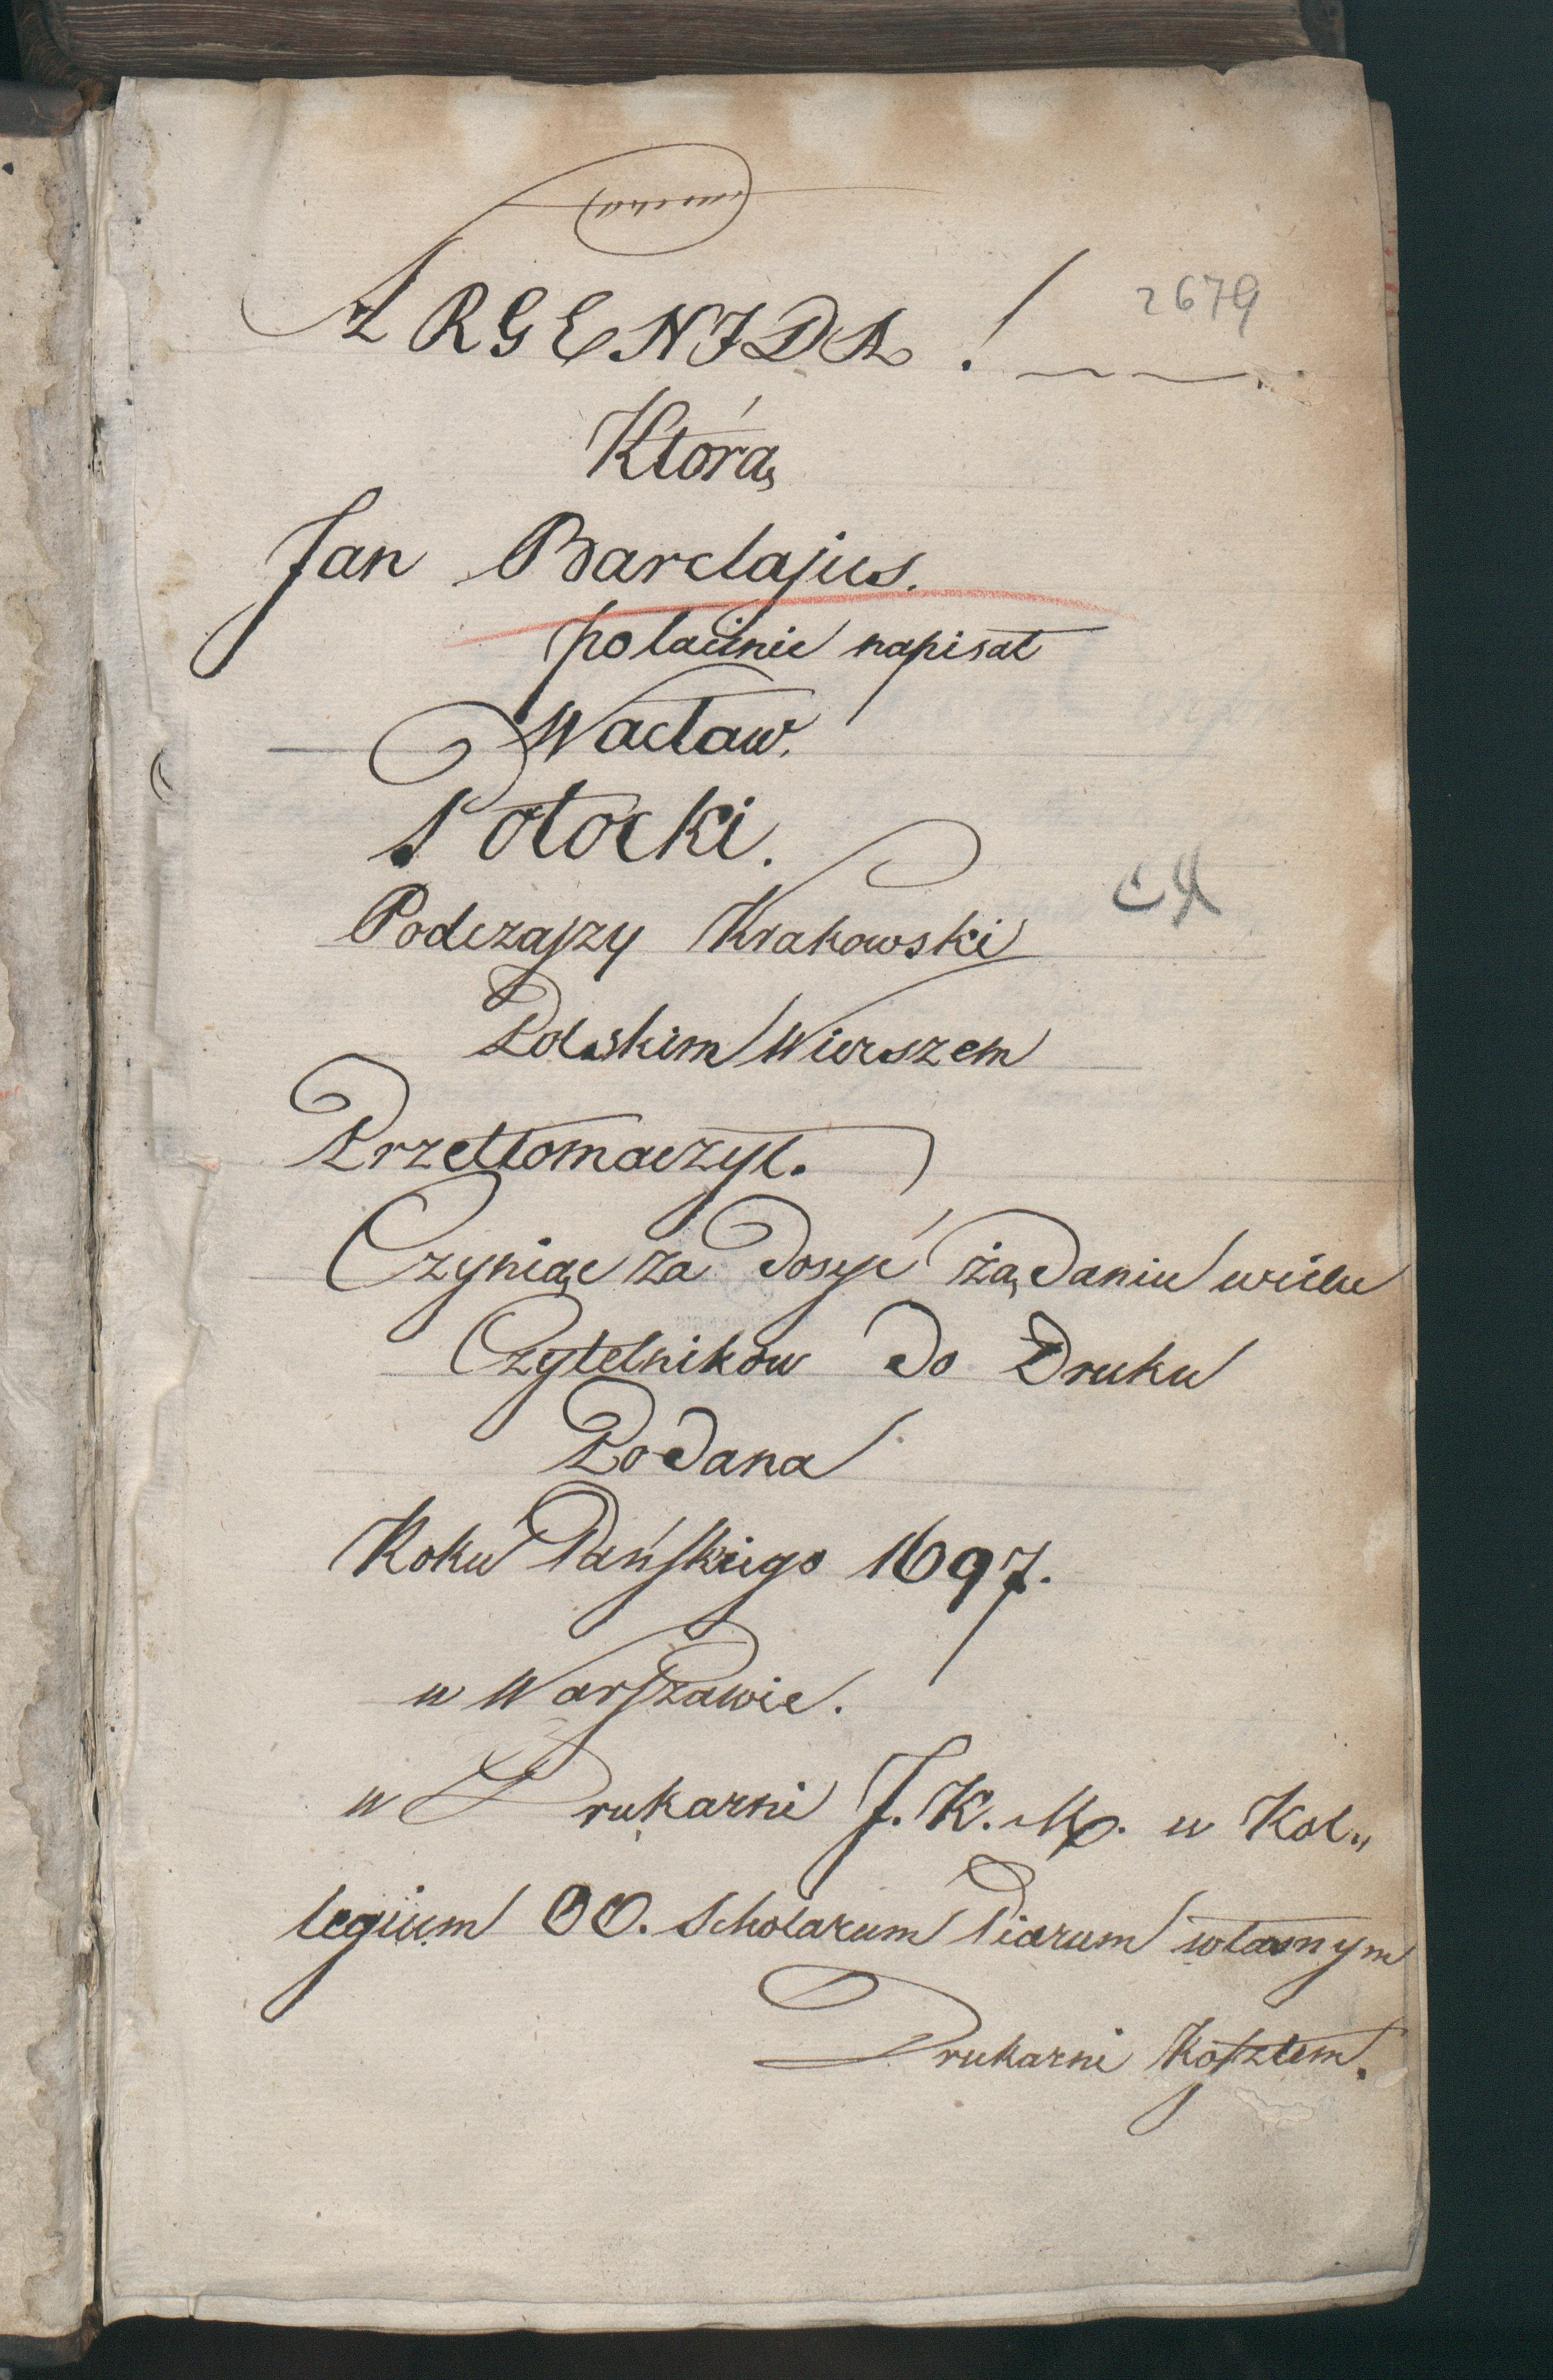 ARGENIDA !
2679
Którą
Jan Barclajus.
po łacinie napisał
Wacław.
Potocki.
Podczaſzy Krakowski
Polskim Wierszem
Przetłomaczył.
Czyniąc za dosyć żądaniu wielu
Czytelnikow do Druku
Podana
Roku Pańſkiego 1697.
w Warſzawie.
w Drukarni J. K. M. w Kol„
legium OO. Scholarum Piarum własnym
Drukarni Koſztem.